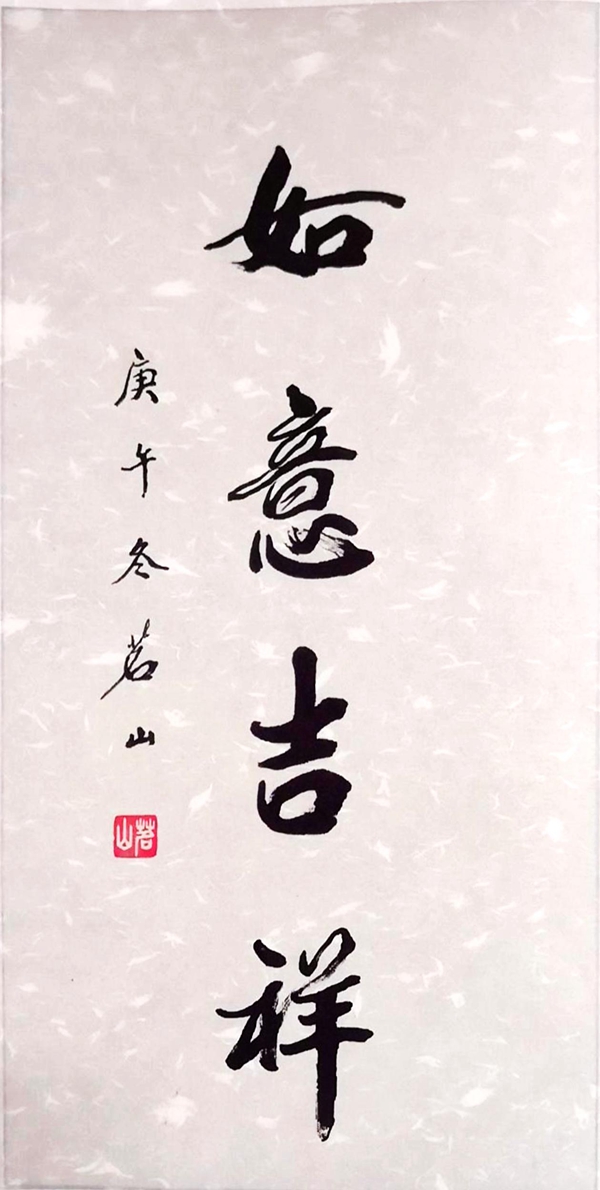 如意吉祥
庚午冬茗山
茗山